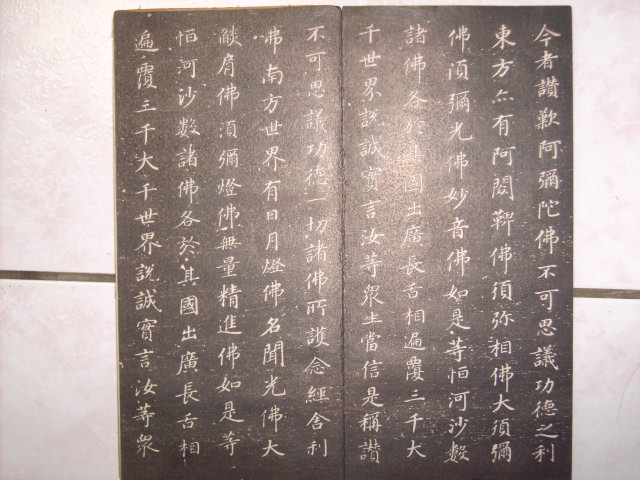 今者讃歎阿彌陀佛不可思議功德之利
東方亦有阿閦鞞佛須弥相佛大須彌
佛須彌光佛妙音佛如是等恒河沙數
諸佛各於其國出廣長舌相遍覆三千大
千世界說誠實言汝等眾生當信是稱讚
不可思議功德一切諸佛所護念經舍利
弗南方世界有日月燈佛名聞光佛大
燄肩佛須彌燈佛無量精進佛如是等
恒河沙數諸佛各於其國出廣長舌相
遍覆三千大千世界說誠實言汝等眾